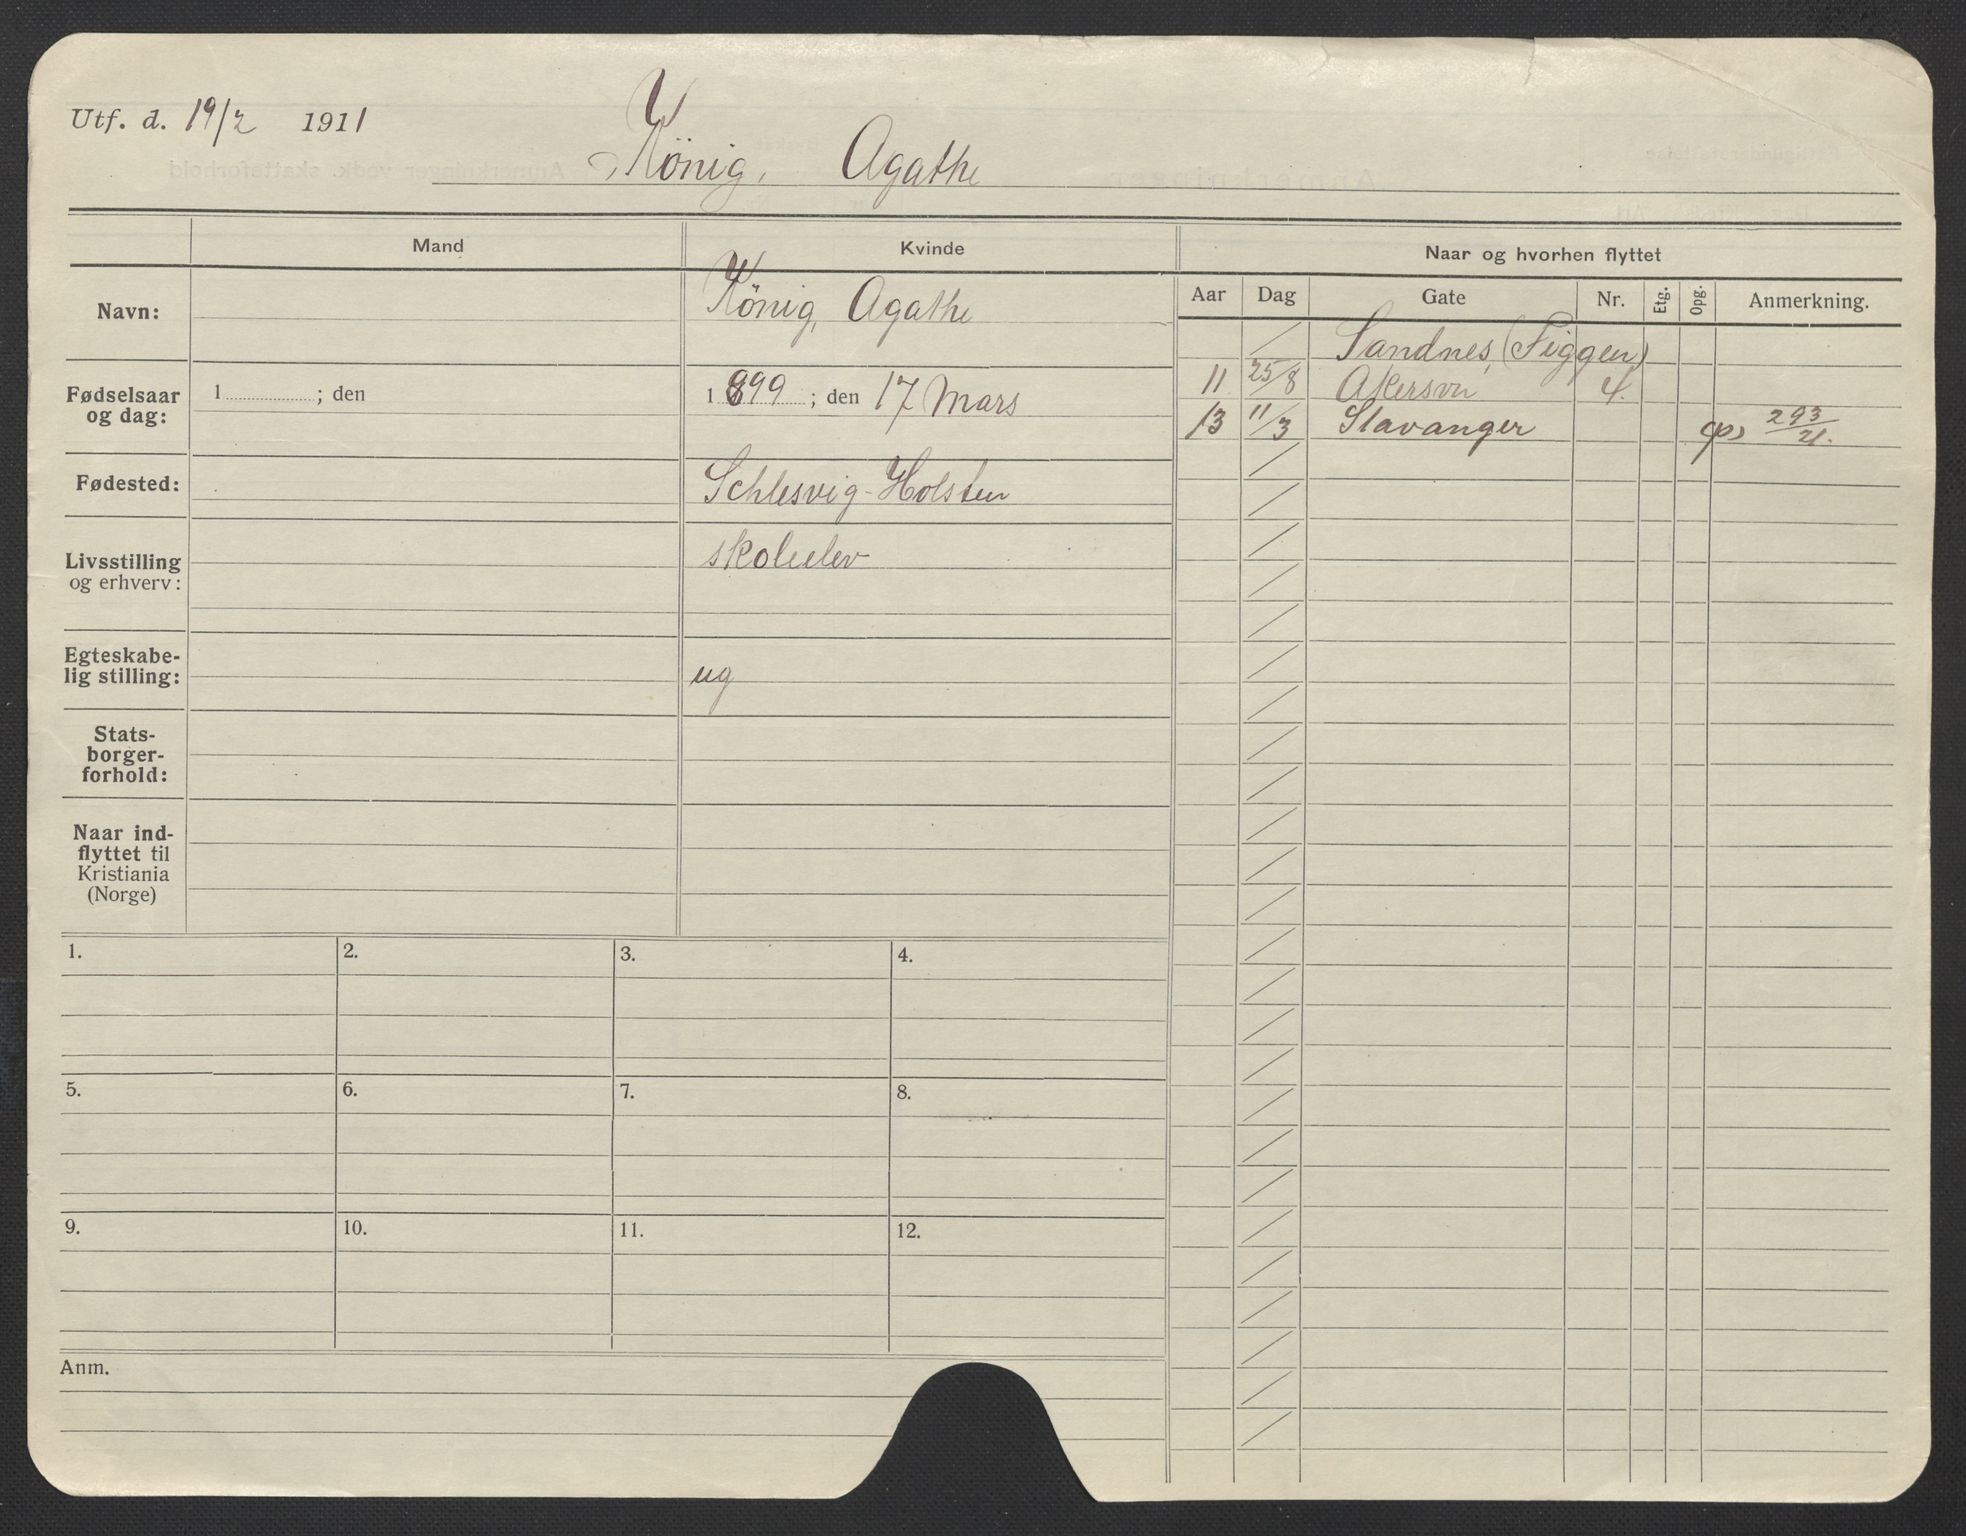 Utf. d. 19/2 1911
König, Agathe
Mand Kvinde Naar og hvorhen flyttet
Aar Dag Gate Nr. Etg. Opg. Anmerkning.
Navn: König, Agathe
Sandnes, (Figgen)
11 25/8 Akersvn 4.
13 11/3 Stavanger 293/21.
Fødselsaar og dag: 1 ; den 1899 ; den 17 Mars
Fødested: Schlesvig-Holsten
Livsstilling og erhverv: skoleelev
Egteskabe-
lig stilling: ug
Stats-
borger-
forhold:
Naar ind-
flyttet til
Kristiania
(Norge)
1. 2. 3. 4.
5. 6. 7. 8.
9. 10. 11. 12.
Anm.